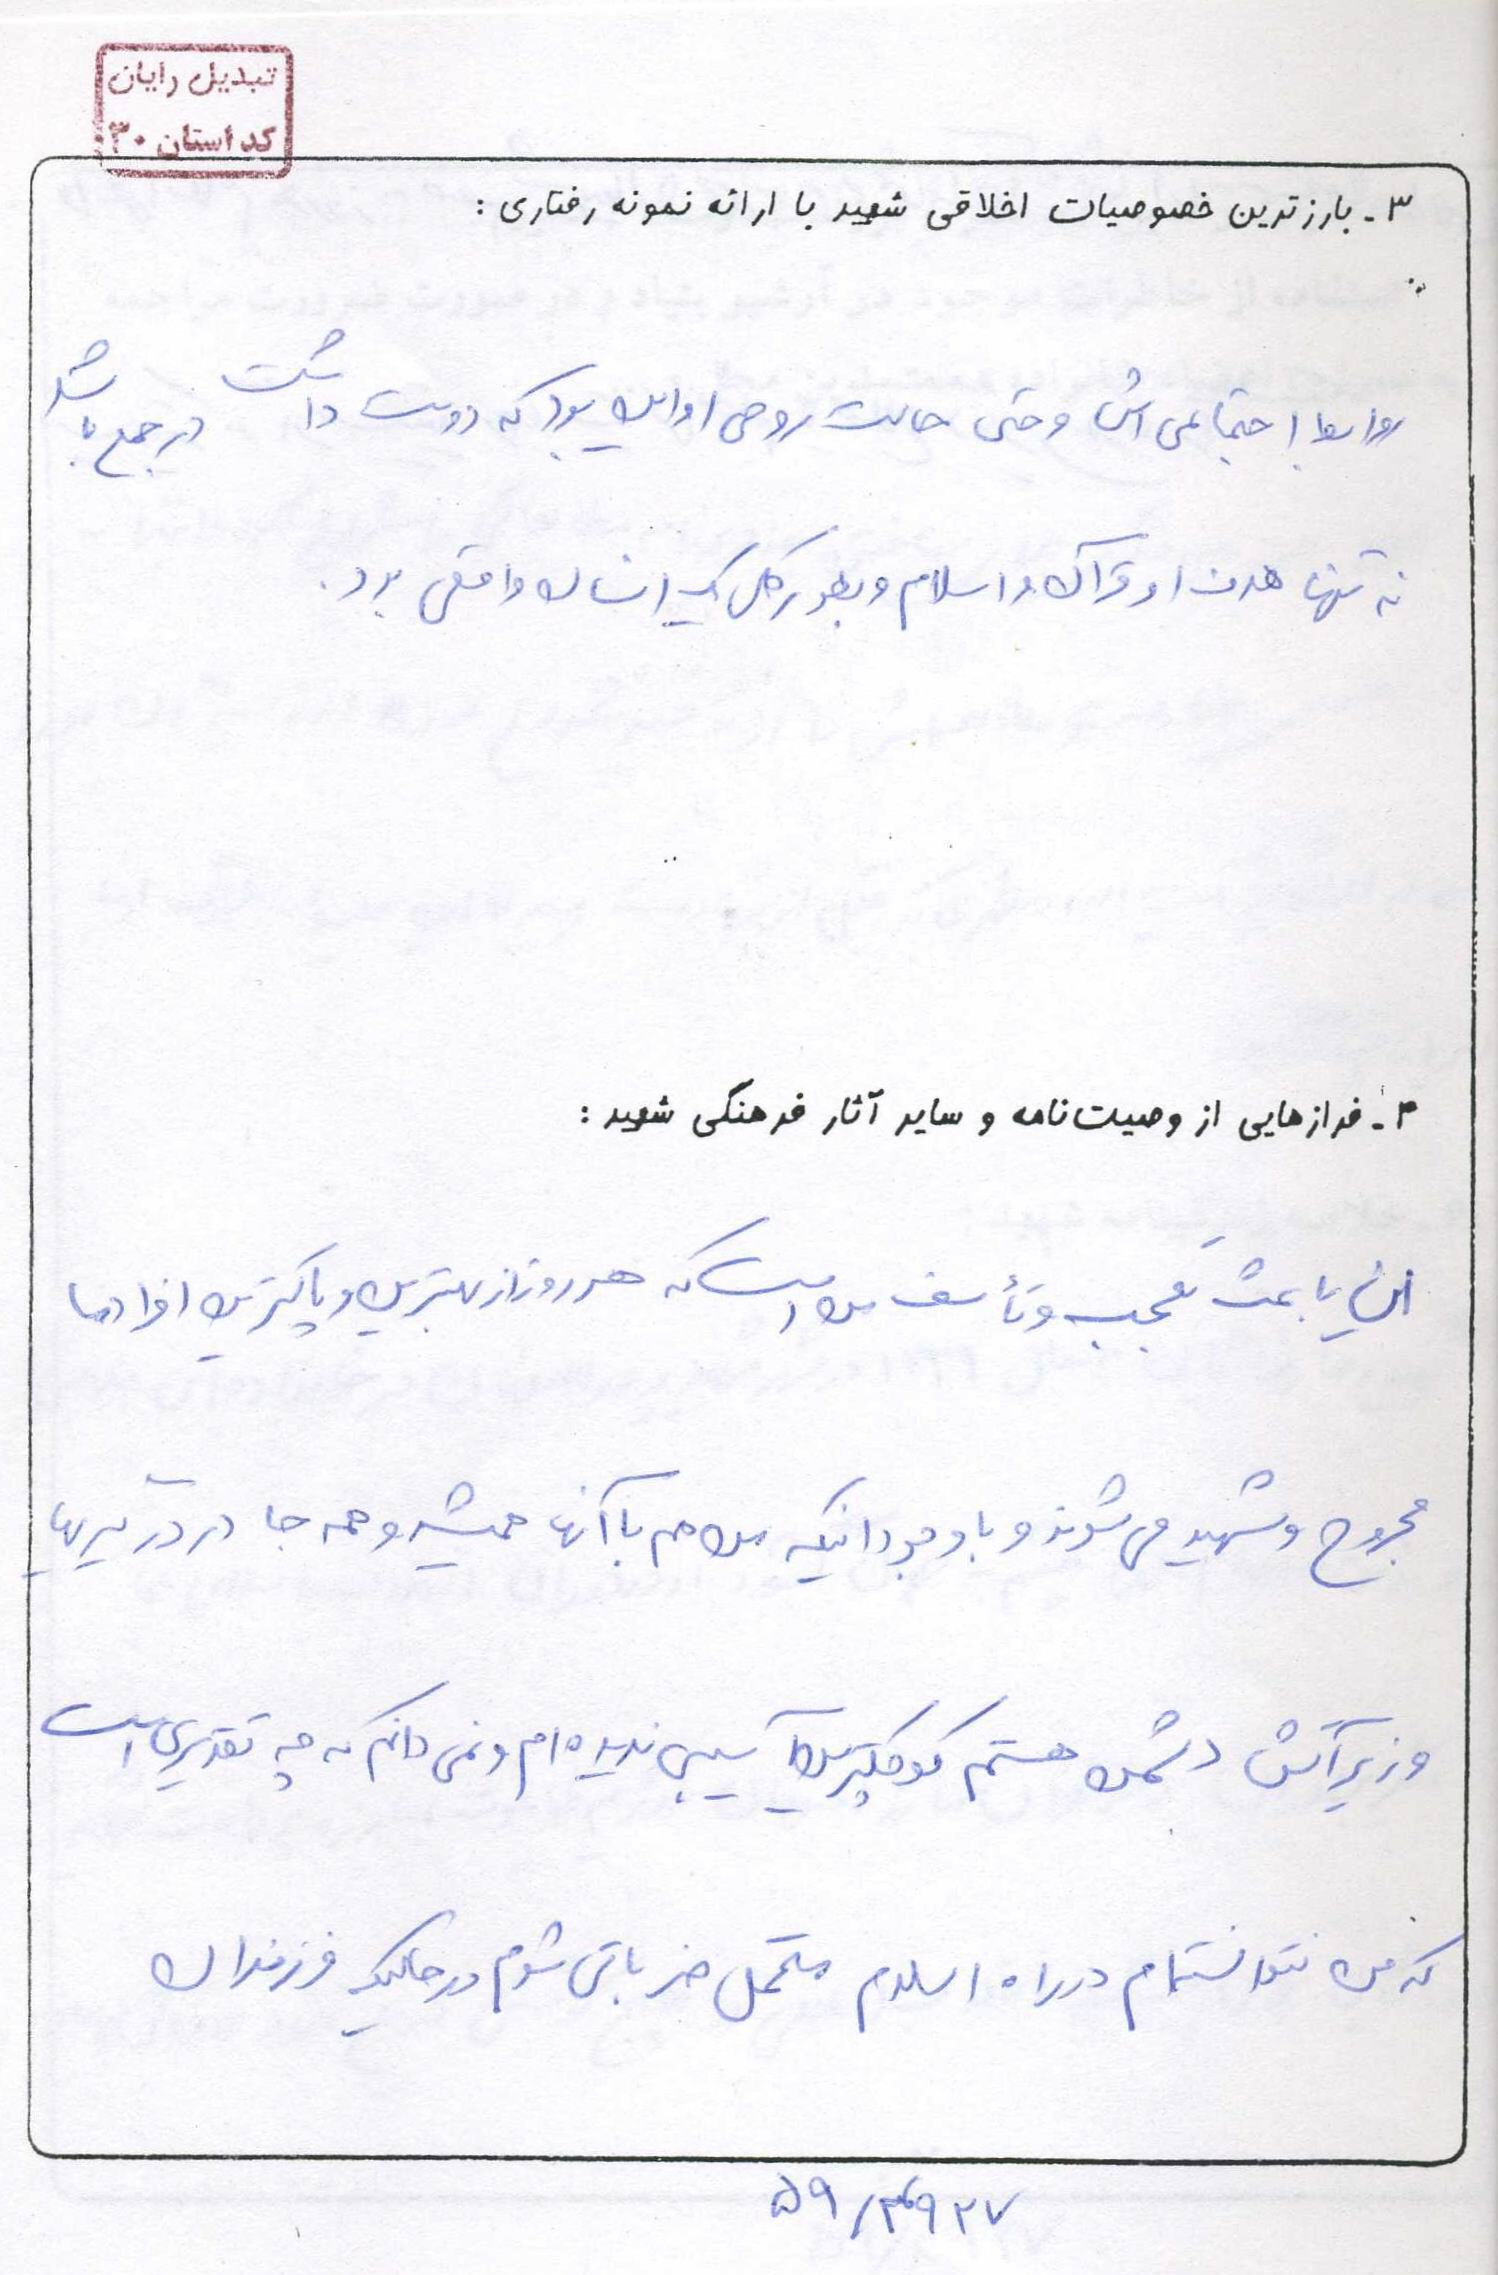 تبدیل رایان
کد استان ۳۰
۳- بارزترین خصوصیات اخلاقی شهید با ارائه نمونه رفتاری :
روابط اجتماعی اش و حتی حالت روحی او این بود که دوست داشت در جمع باشد
نه تنها هدف او قرآن و اسلام و بطور کل یک انسان واقعی بود.
۴- فرازهایی از وصیت‌نامه و سایر آثار فرهنگی شهید :
این باعث تعجب و تأسف من است که هر روز از بهترین و پاکترین افراد ما
مجروح و شهید می شوند و با وجود اینکه من هم با آنها همیشه و همه جا در درگیریها
و زیر آتش دشمن هستم کوچکترین آسیبی ندیده ام و نمی دانم که چه تقدیری است
که من نتوانسته‌ام در راه اسلام متحمل ضرباتی شوم در حالیکه فرزندان